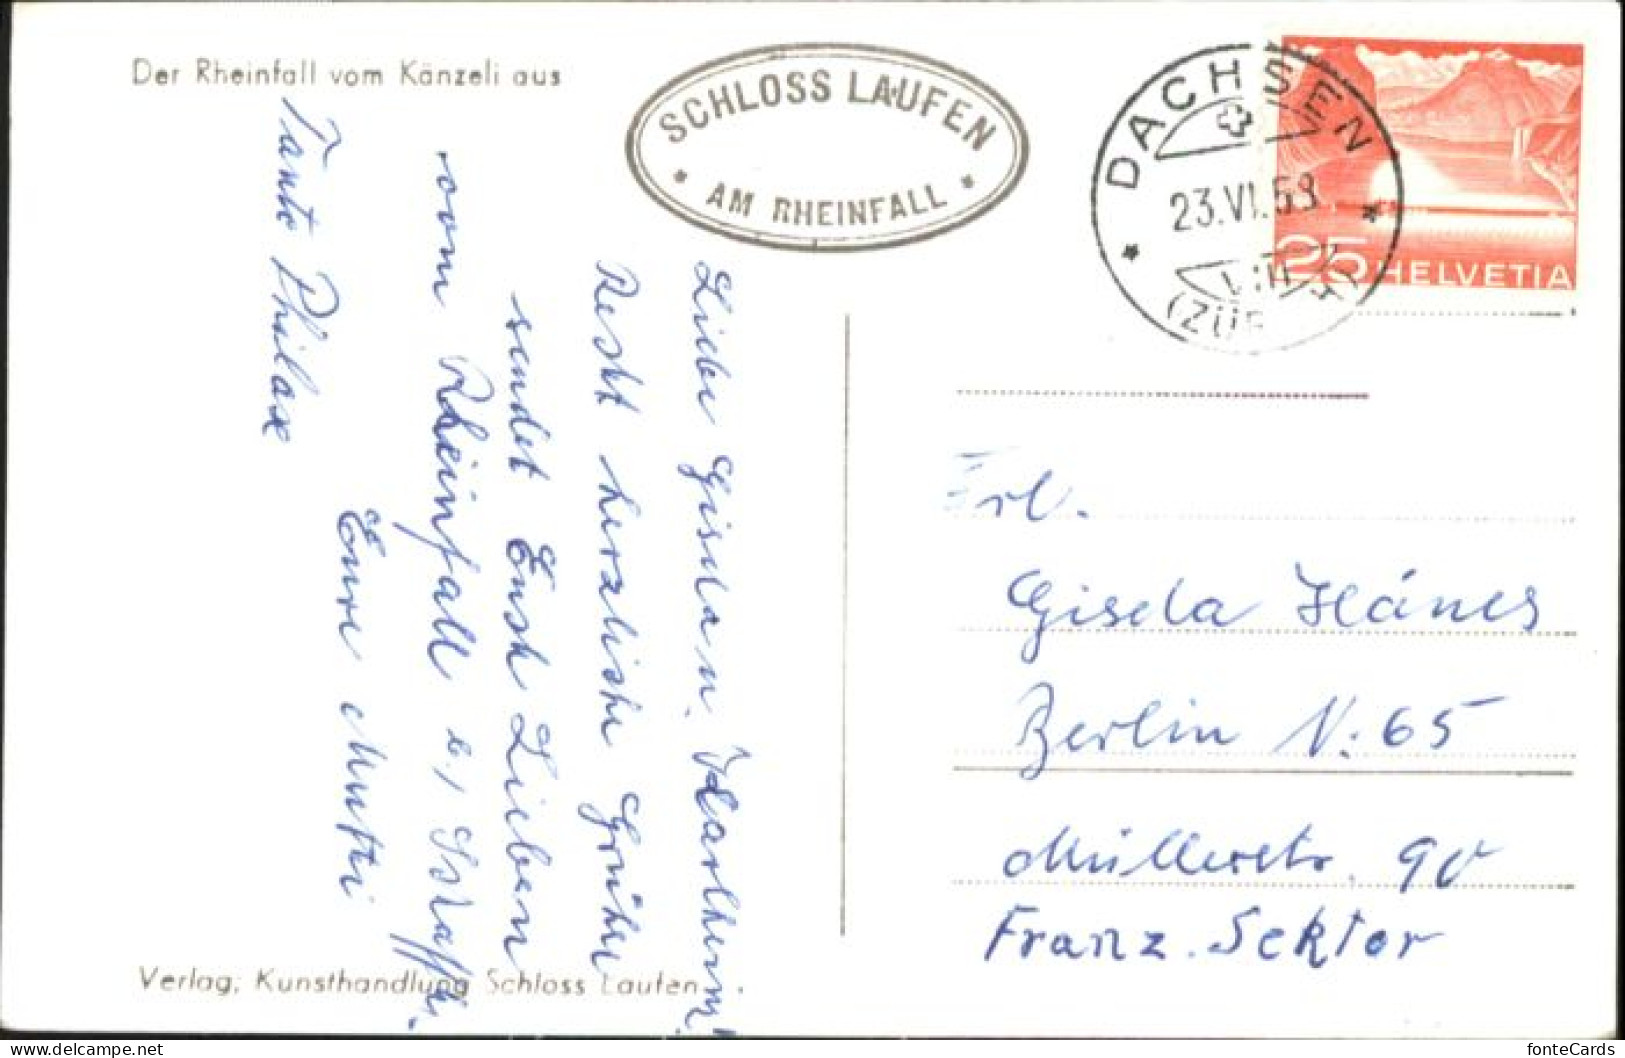 Der Rheinfall vom Känzeli aus
SCHLOSS LAUFEN
* AM RHEINFALL *
DACHSEN
23.VI.53
25 HELVETIA
Liebe Gisela u. Karlheinz!
Recht herzliche Grüße
sendet Euch Lieben
vom Rheinfall b./
Eure Mutti
Tante
Frl.
Gisela
Berlin N. 65
Müllerstr. 90
Franz. Sektor
Verlag; Kunsthandlung Schloss Laufen
fonteCards